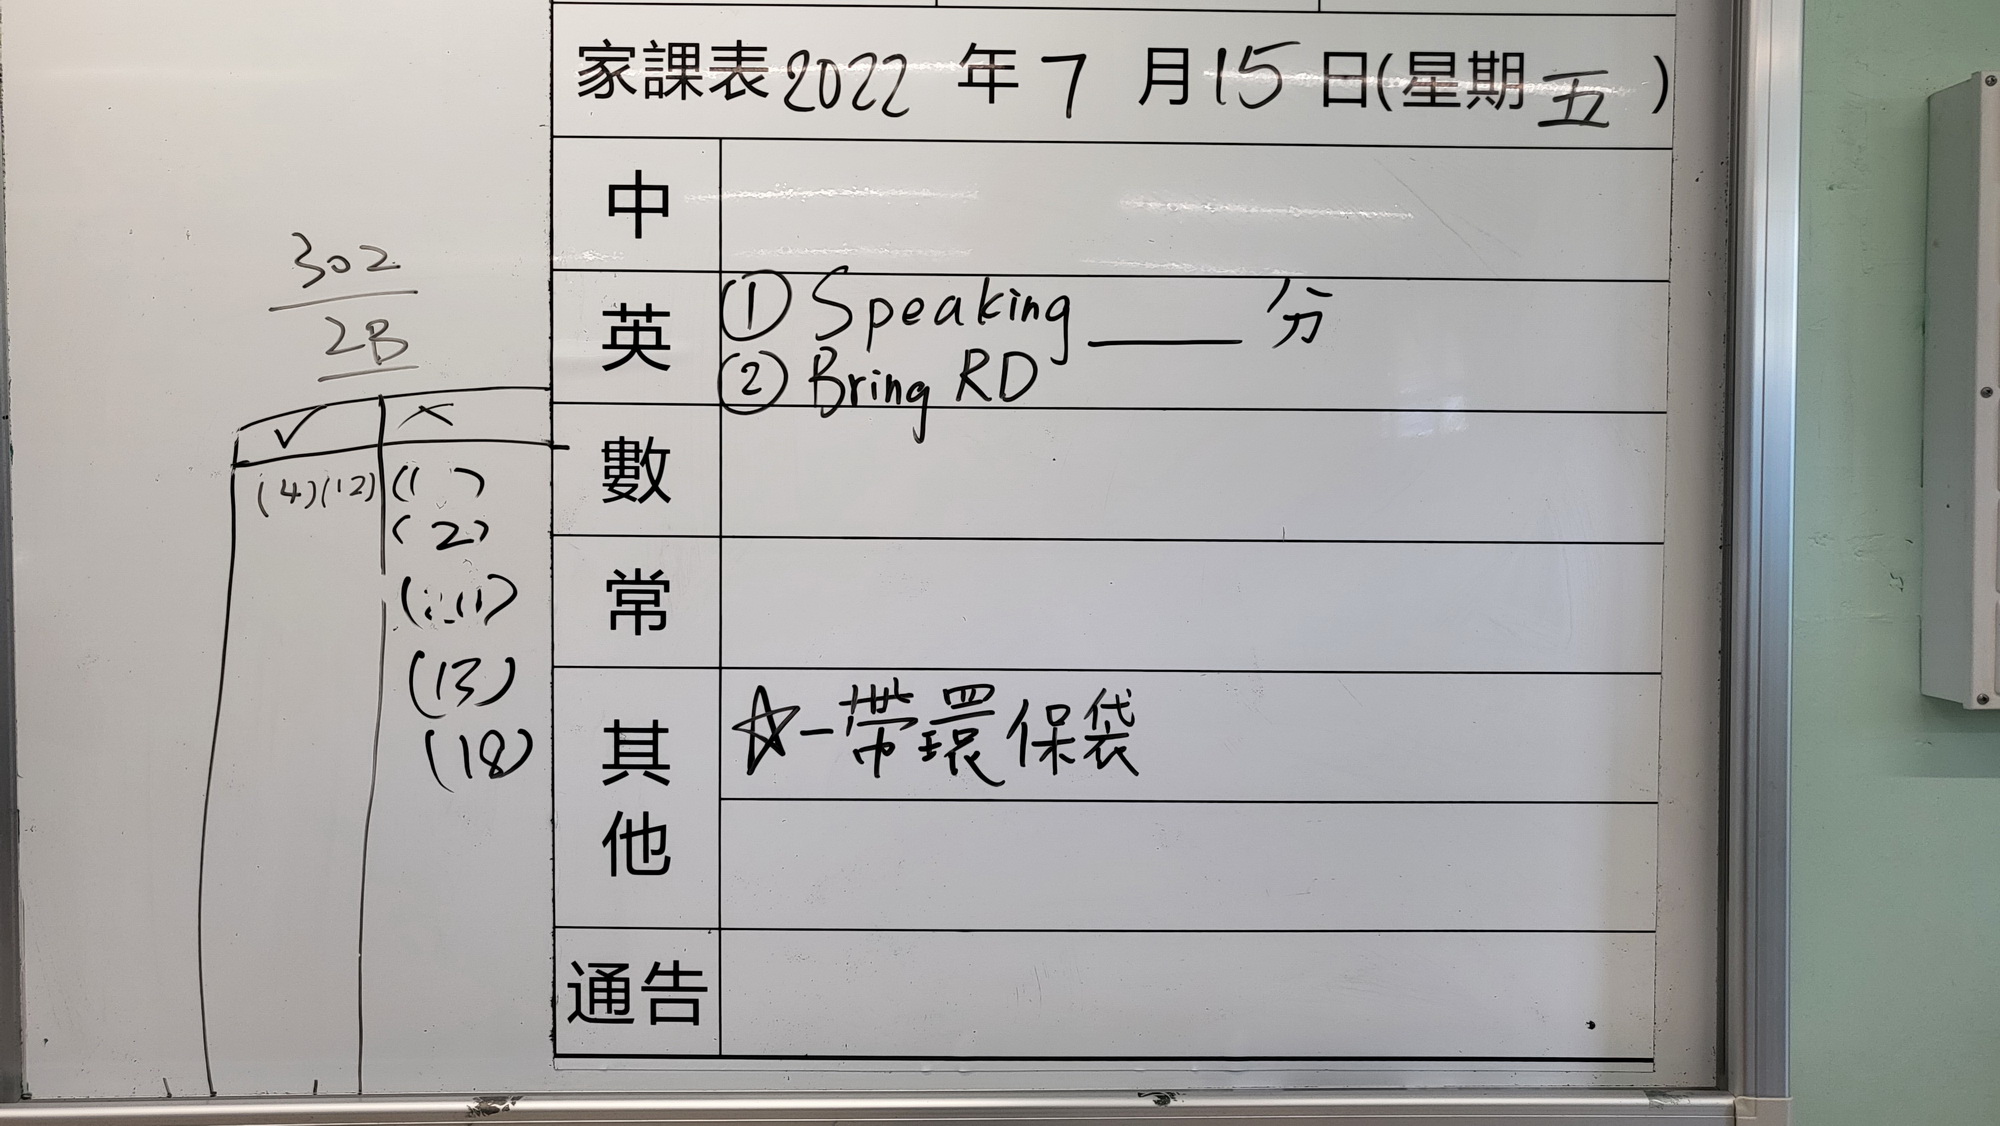 家課表2022年7月15日(星期五)
中
英
① Speaking ____ 分
② Bring RD
數
常
其他
☆-帶環保袋
通告
302
2B
✓ ×
(4)(12) (1 )
(2)
(13)
(18)